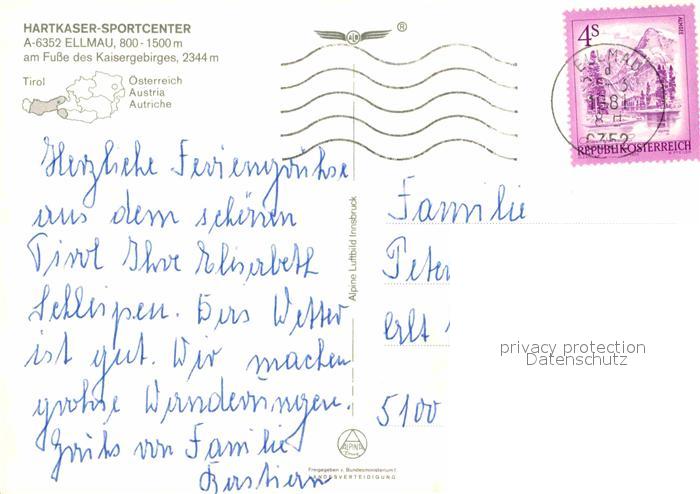 HARTKASER-SPORTCENTER
A-6352 ELLMAU, 800-1500 m
am Fuße des Kaisergebirges, 2344 m
Tirol
Österreich
Austria
Autriche
®
4S
ALMSEE
REPUBLIK ÖSTERREICH
ELLMAU
1981
6352
Herzliche Feriengrühse
aus dem schönen
Tirol Ihre Eliserbeth
Schleipen. Das Wetter
ist gut. Wir machen
grohse Wanderungen.
Grühs von Familie
Bastian
Alpine Luftbild Innsbruck
Familie
Peter
5100
privacy protection
Datenschutz
ALPINE
Freigegeben v. Bundesministerium f.
LANDESVERTEIDIGUNG